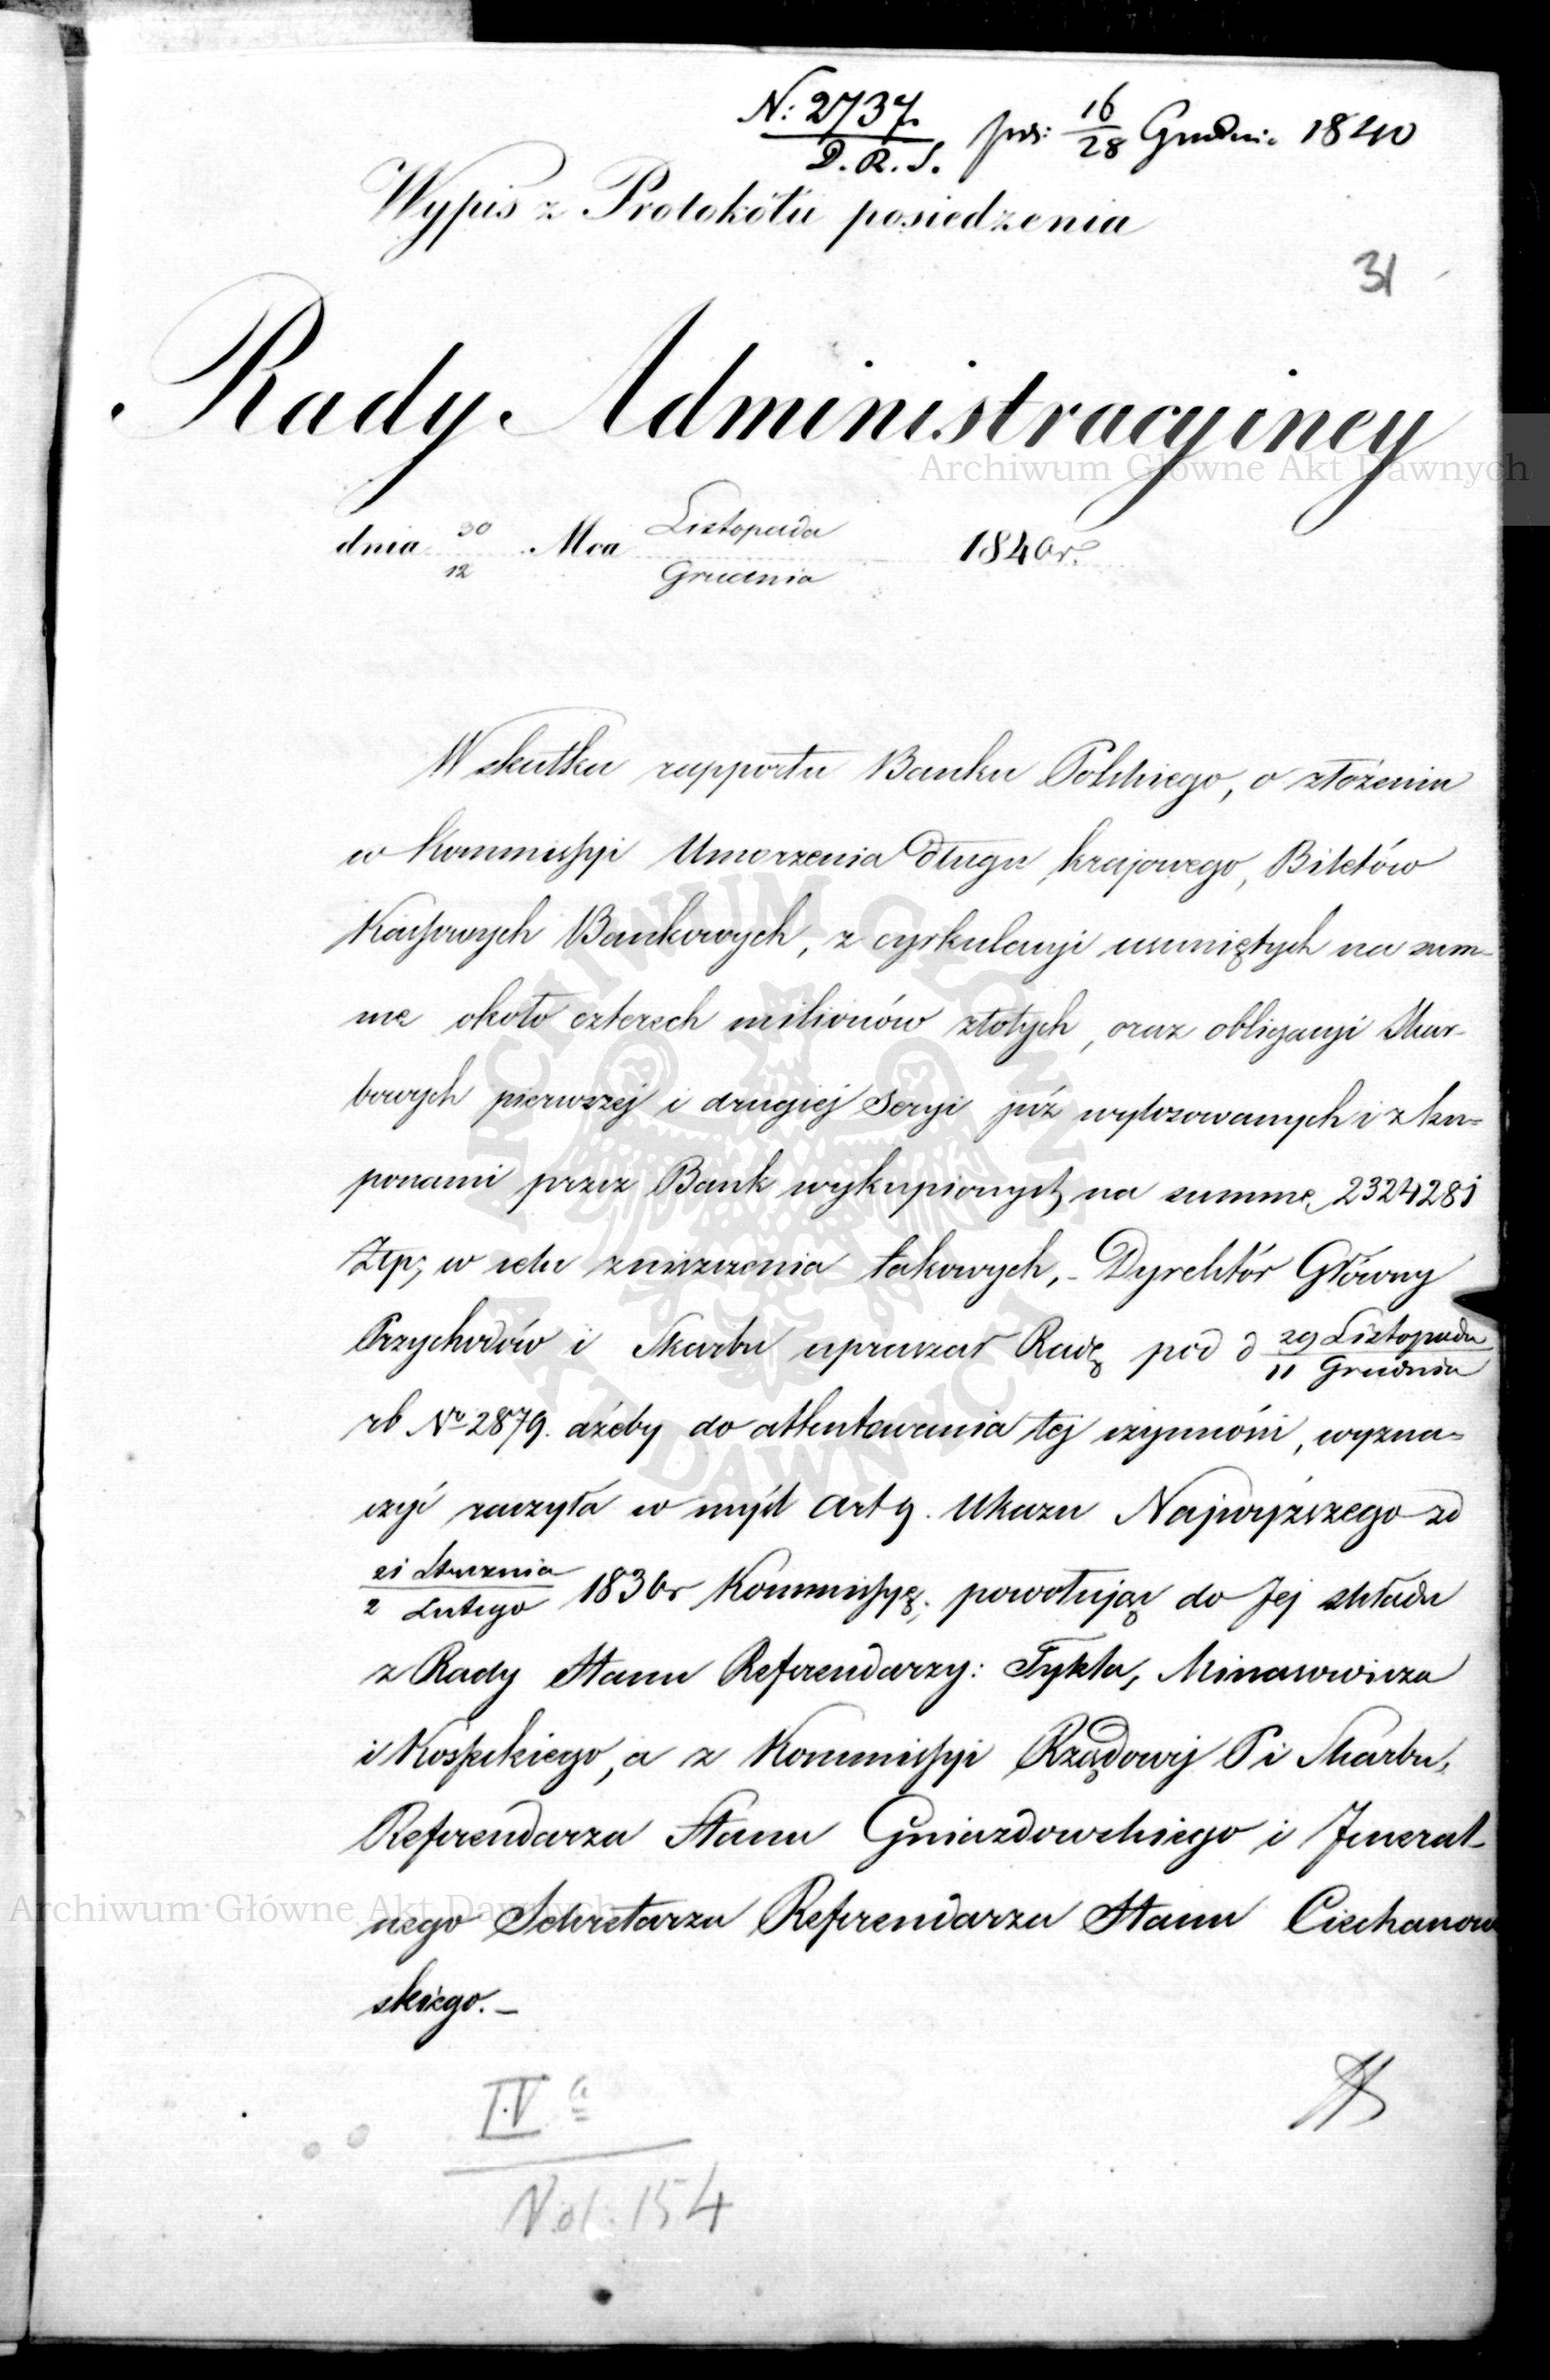 N: 2737. prs: 16/28 Grudnia 1840
D. R. S.
Wypis z Protokółu posiedzenia
31
Rady Administracyiney
dnia 30/12 Mca Listopada/Grudnia 1840r.
W skutku rapportu Banku Polskiego, o złożeniu
w Kommissyi Umorzenia długu krajowego, Biletów
Kassowych Bankowych, z cyrkulacyi usuniętych na sum-
mę około czterech milionów złotych, oraz obligacyi Skar-
bowych pierwszej i drugiej Seryi już wylosowanych i z ku=
ponami przez Bank wykupionych na summę 2324281
Złp; w celu zniszczenia takowych, - Dyrektór Główny
Przychodów i Skarbu upraszał Radę pod d 29 Listopada/11 Grudnia
rb No 2879. ażeby do attentowania tej czynności, wyzna=
czyć raczyła w myśl art 9. Ukazu Najwyższego zd
21 Stycznia/2 Lutego 1836r Kommissyę; powołując do Jej składu
z Rady Stanu Referendarzy: Tykla, Minasowicza
i Kosseckiego, a z Kommissyi Rządowej P i Skarbu,
Referendarza Stanu Gniazdowskiego i Jeneral-
nego Sekretarza Referendarza Stanu Ciechanow
skiego. -
IV a
Vol. 154
Archiwum Główne Akt Dawnych
Archiwum Główne Akt Dawnych
ARCHIWUM GŁÓWNE AKT DAWNYCH